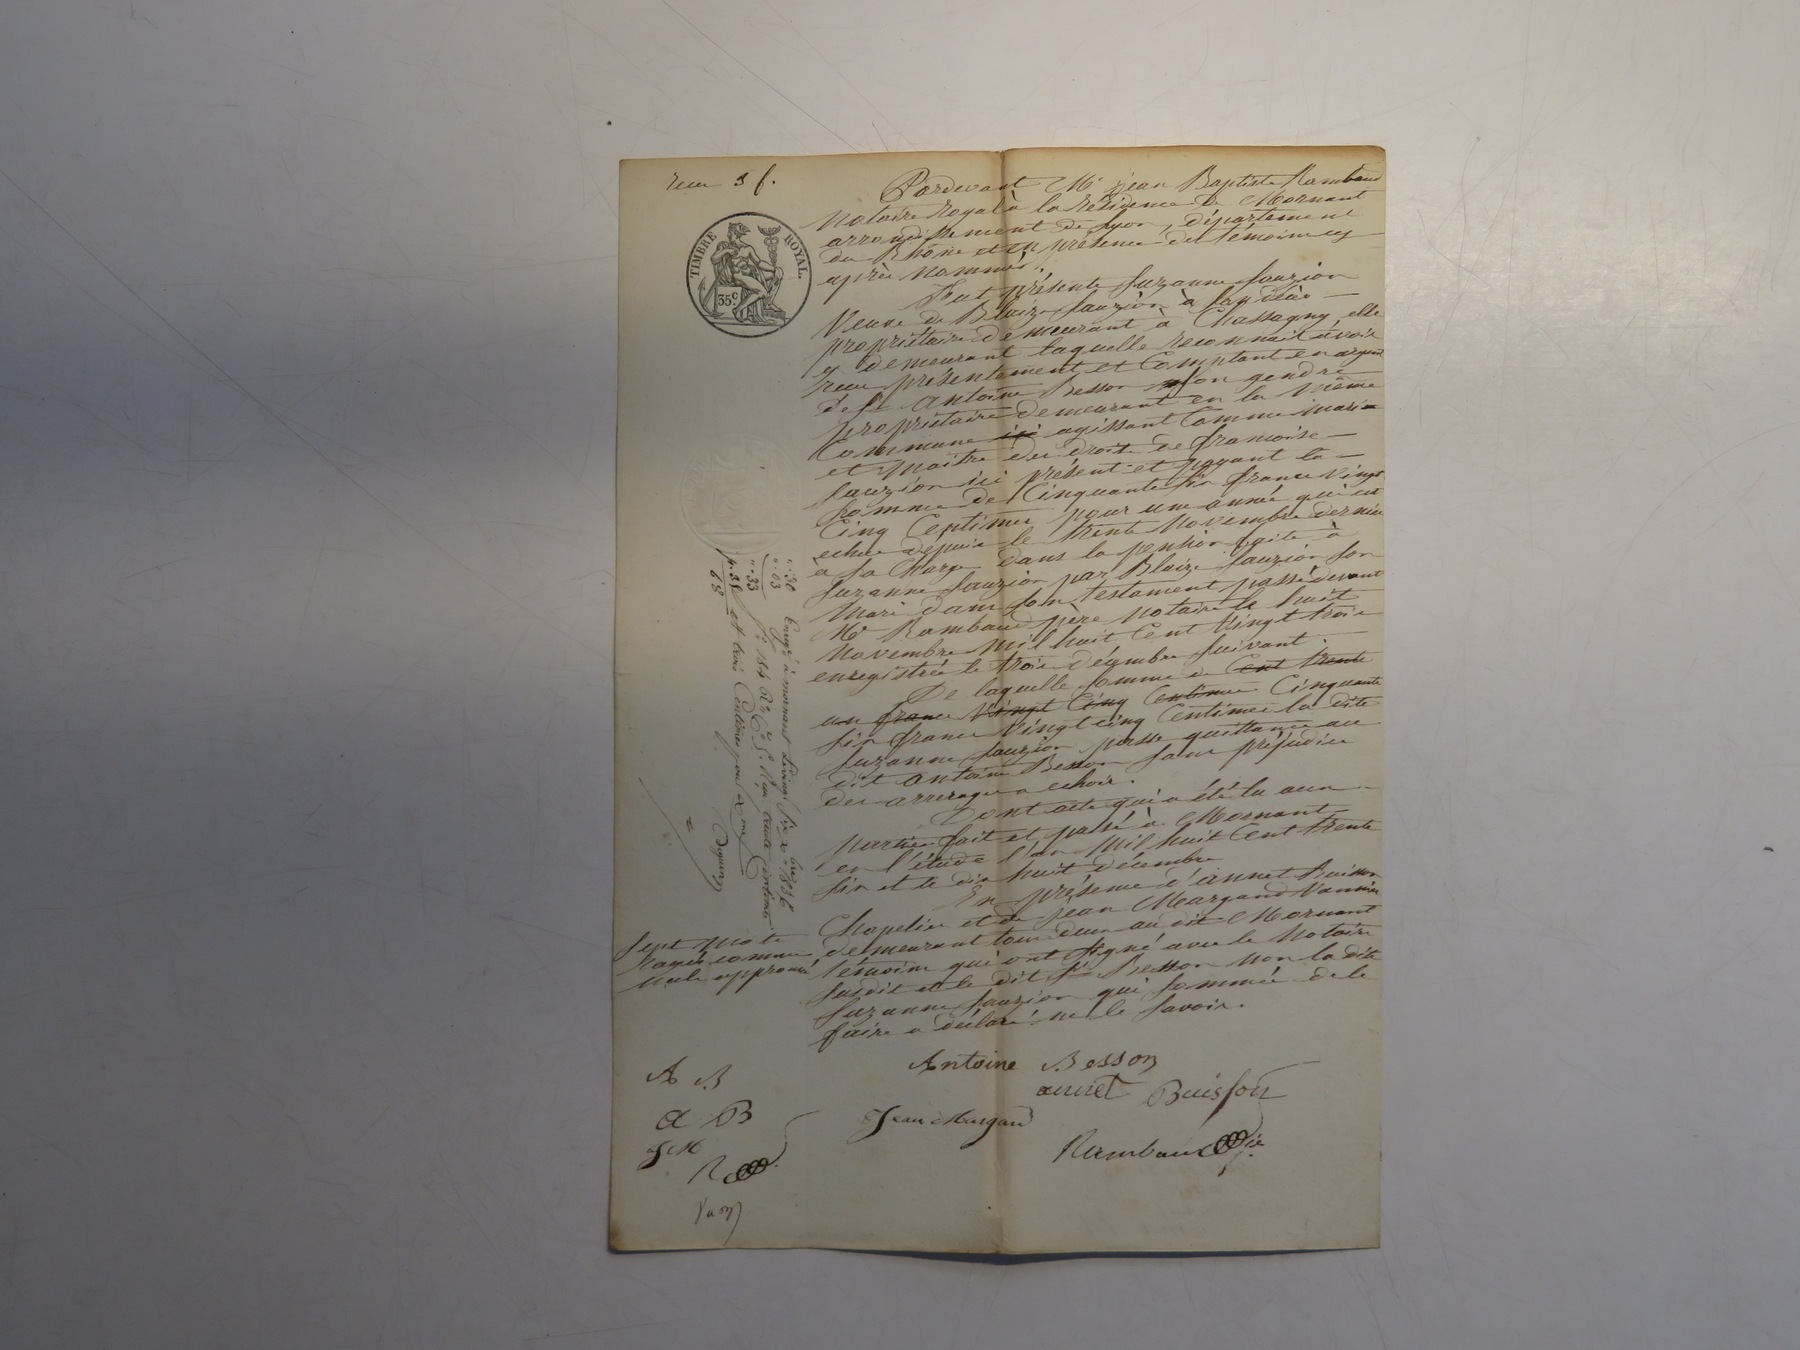 recu 3 f.
TIMBRE ROYAL.
35c
Pardevant Me jean Baptiste Rambaud
Notaire Royal à la Résidence de Mornant
arrondissement de Lyon, département
du Rhône et en présence des témoins cy
après nommés.
Fut présente Suzanne Fauzion
Veuve de Blaize Fauzion à
propriétaire demeurant à Chassagny elle
y demeurant laquelle reconnait avoir
recu présentement et comptant en argent
de Sr Antoine Besson son gendre
propriétaire demeurant en la même
Commune ici agissant comme mari
et maître des droits de francoise
fauzion ici présent et payant la
somme de Cinquante six francs vingt
Cinq Centimes pour une année qui est
echue depuis le trente novembre dernier
a sa charge dans la pension faite à
Suzanne fauzion par Blaize fauzion son
mari dans son testament passé devant
Me Rambaud père Notaire le huit
Novembre mil huit cent vingt trois
enregistrée le trois décembre suivant.
De laquelle somme de Cent trente
un francs Vingt Cinq Centimes Cinquante
six francs vingt cinq Centimes la dite
Suzanne fauzion passe quittance au
dit Antoine Besson sans préjudice
des arrerages a echoir.
Dont acte qui a été lu aux
parties fait et passé à Mornant
en l'étude l'an mil huit cent trente
six et le dix huit décembre
En présence d'annet Buisson
Chapelier et de jean Margand Vannier
demeurant tous deux au dit Mornant
témoins qui ont signé avec le Notaire
susdit et le dit Sr Besson non la dite
Suzanne fauzion qui sommée de le
faire a déclaré ne le savoir.
Sept mots
rayés comme
nuls approuvé
30
03
33
35
68
Enregé à mornant 1836
fo 184 Ro Co 5 Recu trente centimes
et trois centimes pour
Antoine Besson
annet Buisson
Jean Margand
Rambaud
A B
a B
J M
R